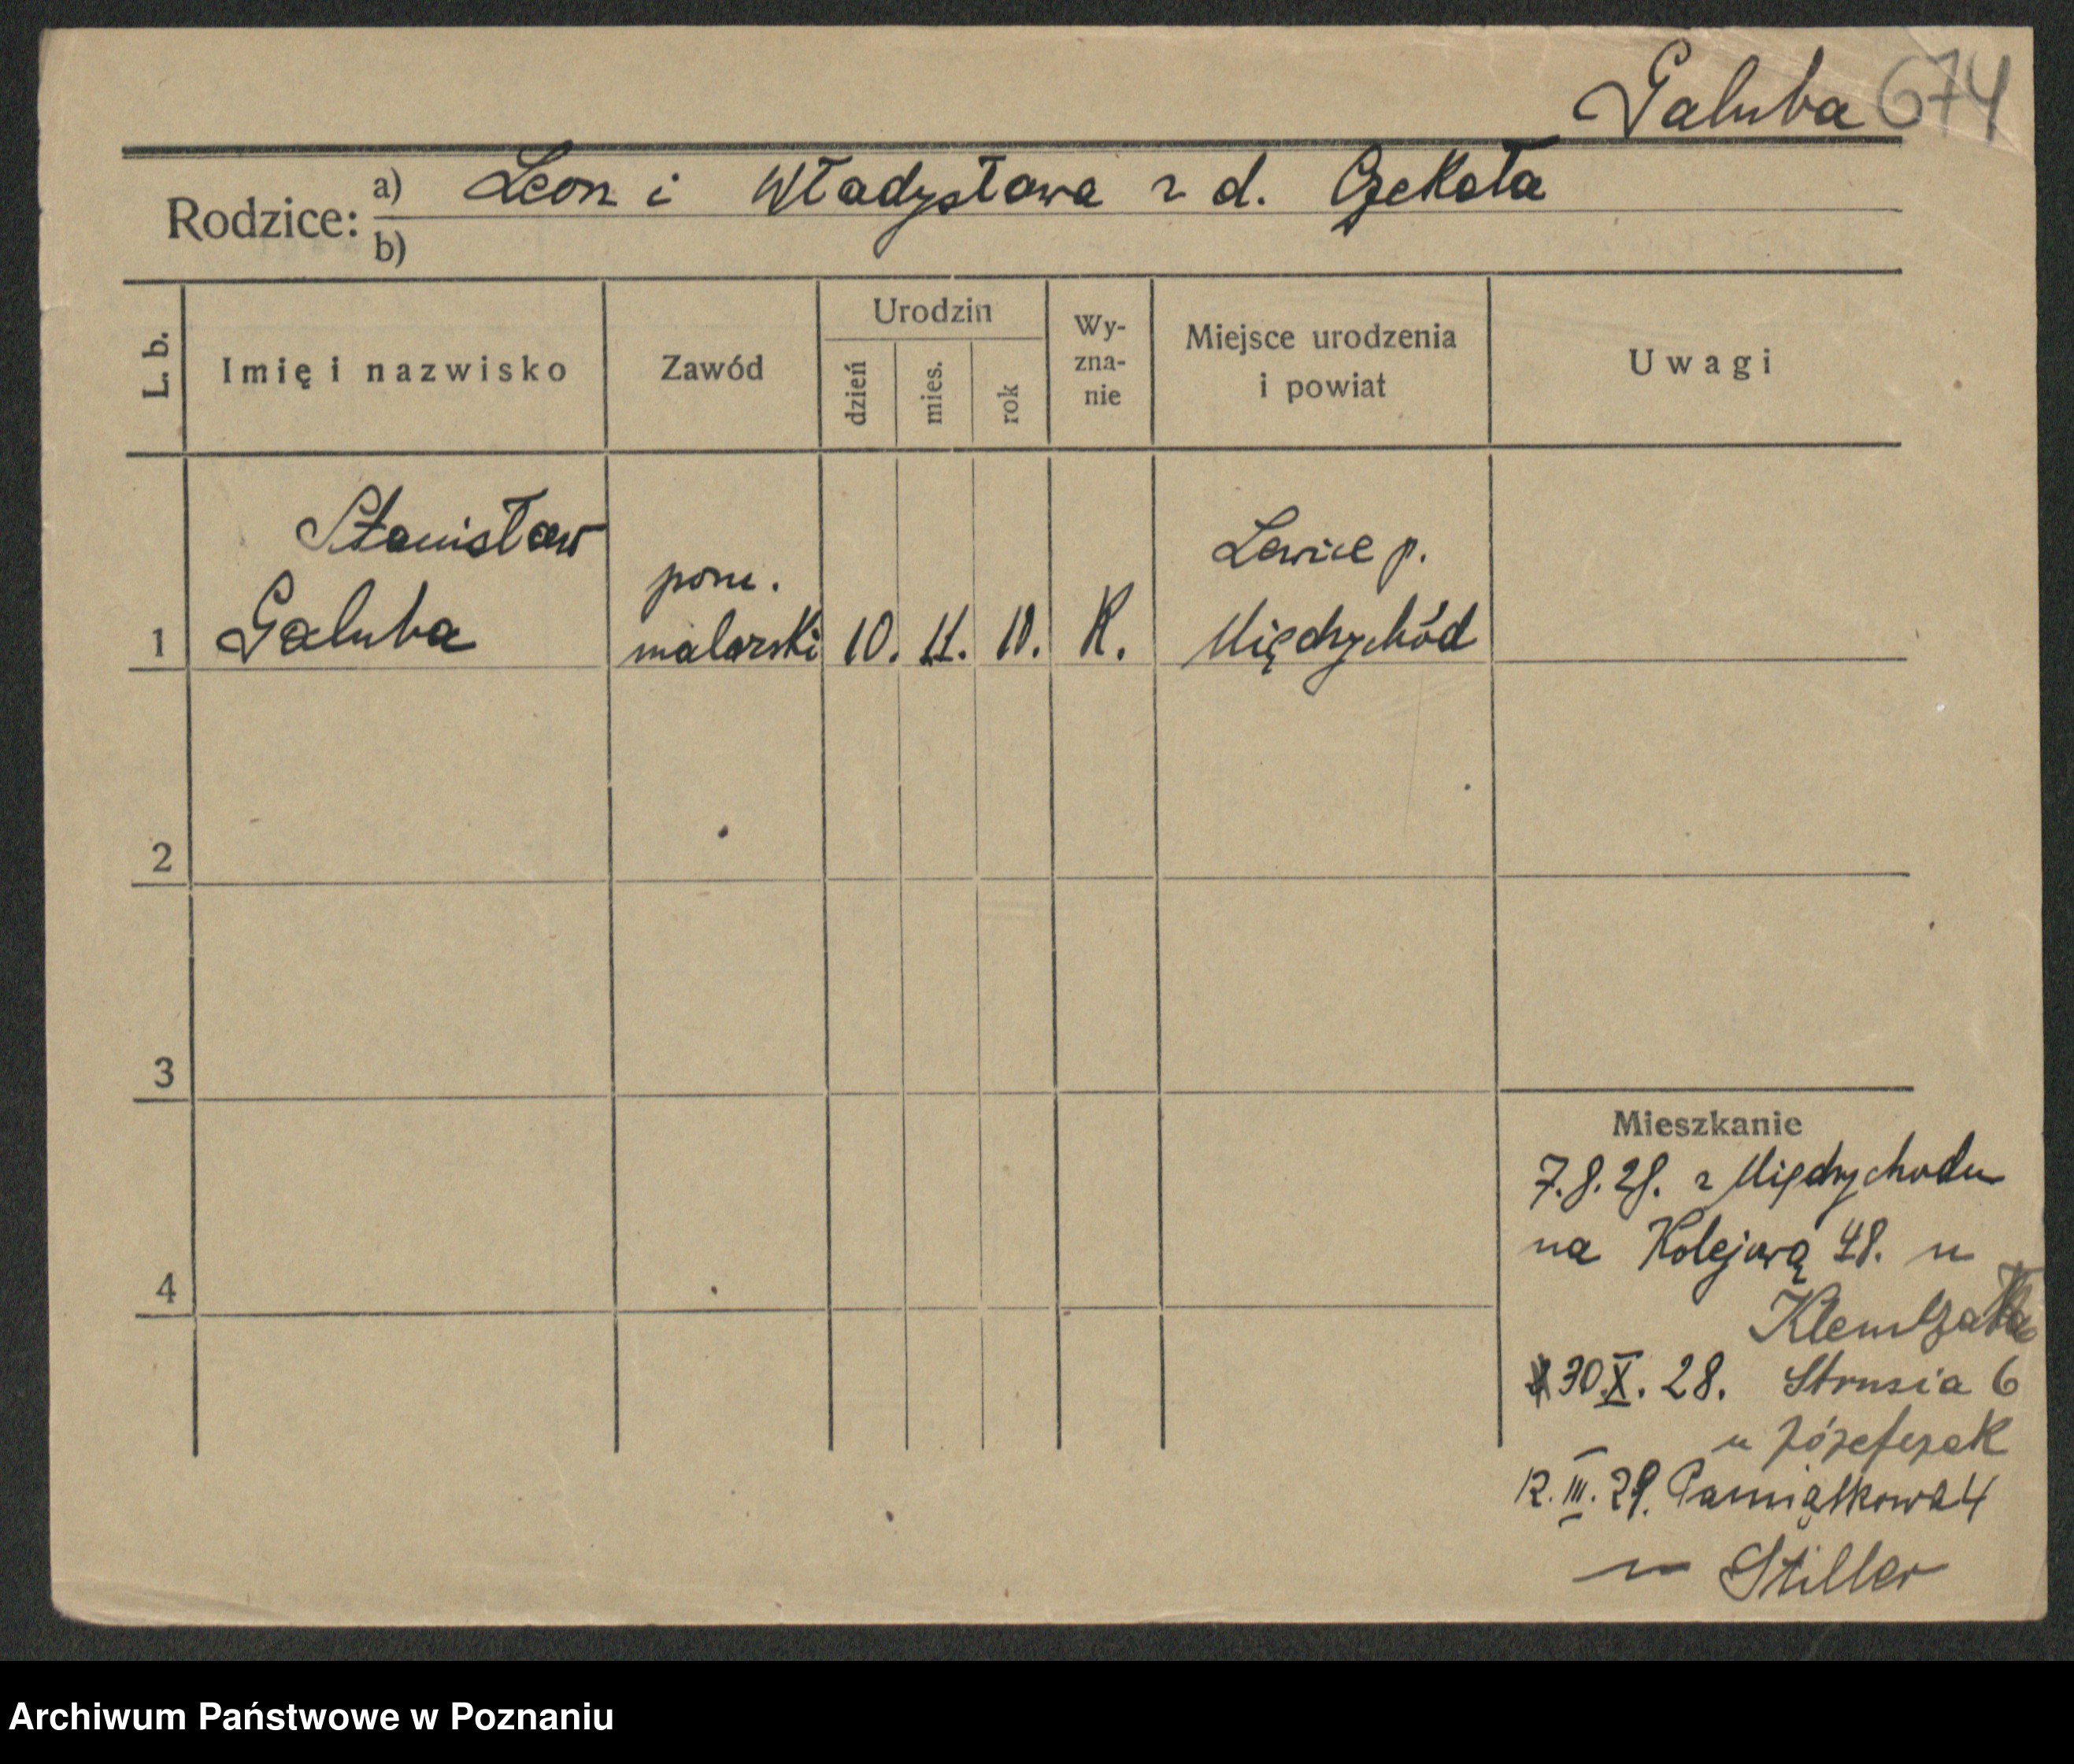 Galuba 674
Rodzice: a) Leon i Władysława z d. Czekała
b)
L. b.
Imię i nazwisko
Zawód
Urodzin
dzień
mies.
rok
Wy-
zna-
nie
Miejsce urodzenia
i powiat
Uwagi
Stanisław
Galuba
pom.
malarski
10. 11. 10.
K.
Lewice p.
Międzychód
1
2
3
4
Mieszkanie
7.8.28. z Międzychodu
na Kolejową 48. u
30.X.28. Strusia 6
u Józefczak
12.III.29. Pamiątkowa 4
u Stiller
Archiwum Państwowe w Poznaniu